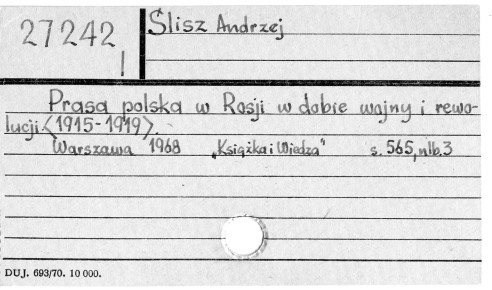 27242
I
Ślisz Andrzej
Prasa polska w Rosji w dobie wojny i rewo-
lucji <1915-1919>.
Warszawa 1968 „Książka i Wiedza" s. 565, nlb. 3
DUJ. 693/70. 10 000.